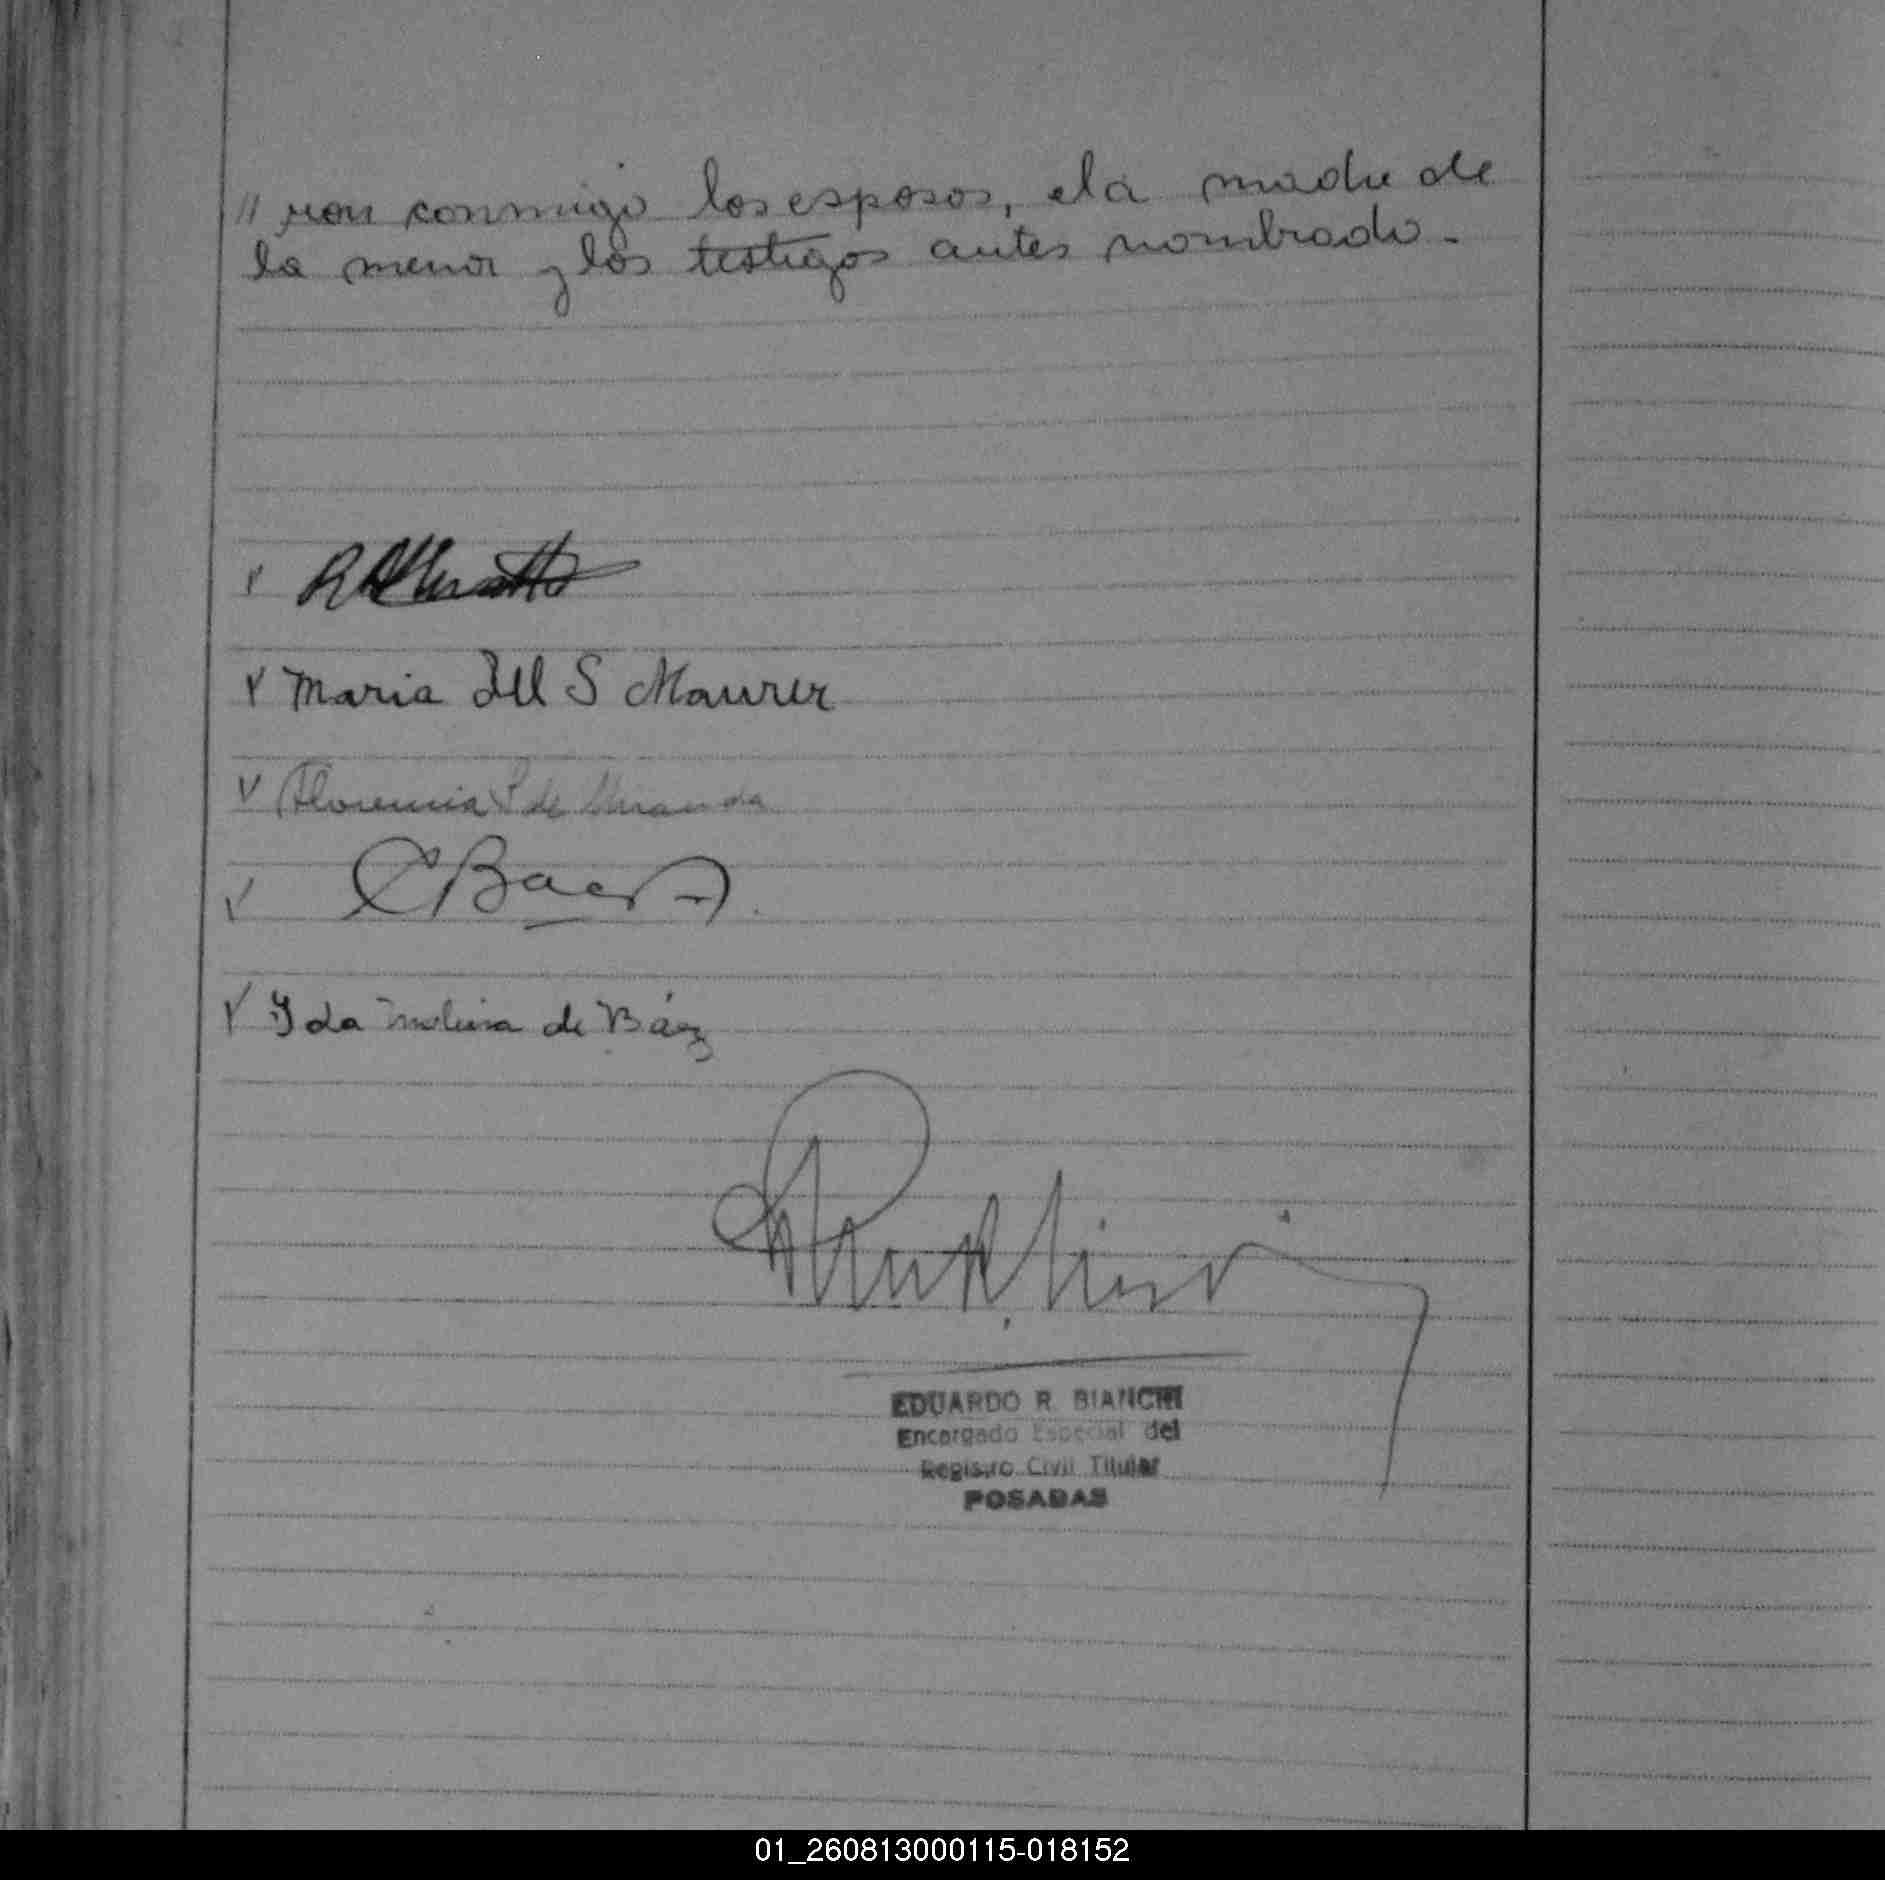 // ron conmigo los esposos, ela madre de
la menor y los testigos antes nombrado.-
Maria Del S Maurer
Florencia S de Miranda
CBaez
Yda Molina de Báez
EDUARDO R. BIANCHI
Encargado Especial del
Registro Civil Titular
POSADAS
01_260813000115-018152